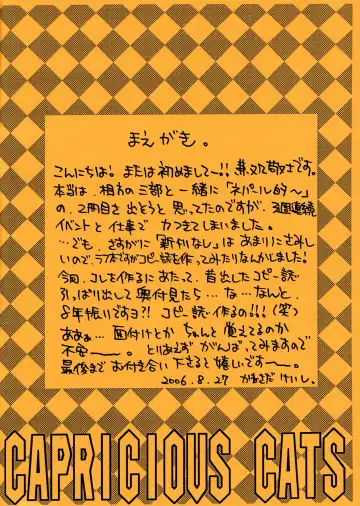 まえがき。
こんにちは。または初めまして〜!! 兼処敬士です。
本当は、相方の三部と一緒に「ネパール的〜」
の、2冊目を出そうと思ってたのですが、3週連続
イベントと仕事で力つきてしまいました。
…でも、さすがに「新刊なし」はあまりにさみし
いので、ラフ本ですがコピー誌を作ってみたりなんかしました!
今回、コレを作るにあたって、昔出したコピー誌
引っぱり出して奥付見たら…な…なんと、
8年振りですヨ?! コピー誌作るの!!!(笑)
ああぁ…面付けとかちゃんと覚えてるのか
不安——。とりあえずがんばってみますので
最後までお付き合い下さると嬉しいです〜。
2006.8.27 かねさだけいし。
CAPRICIOUS CATS